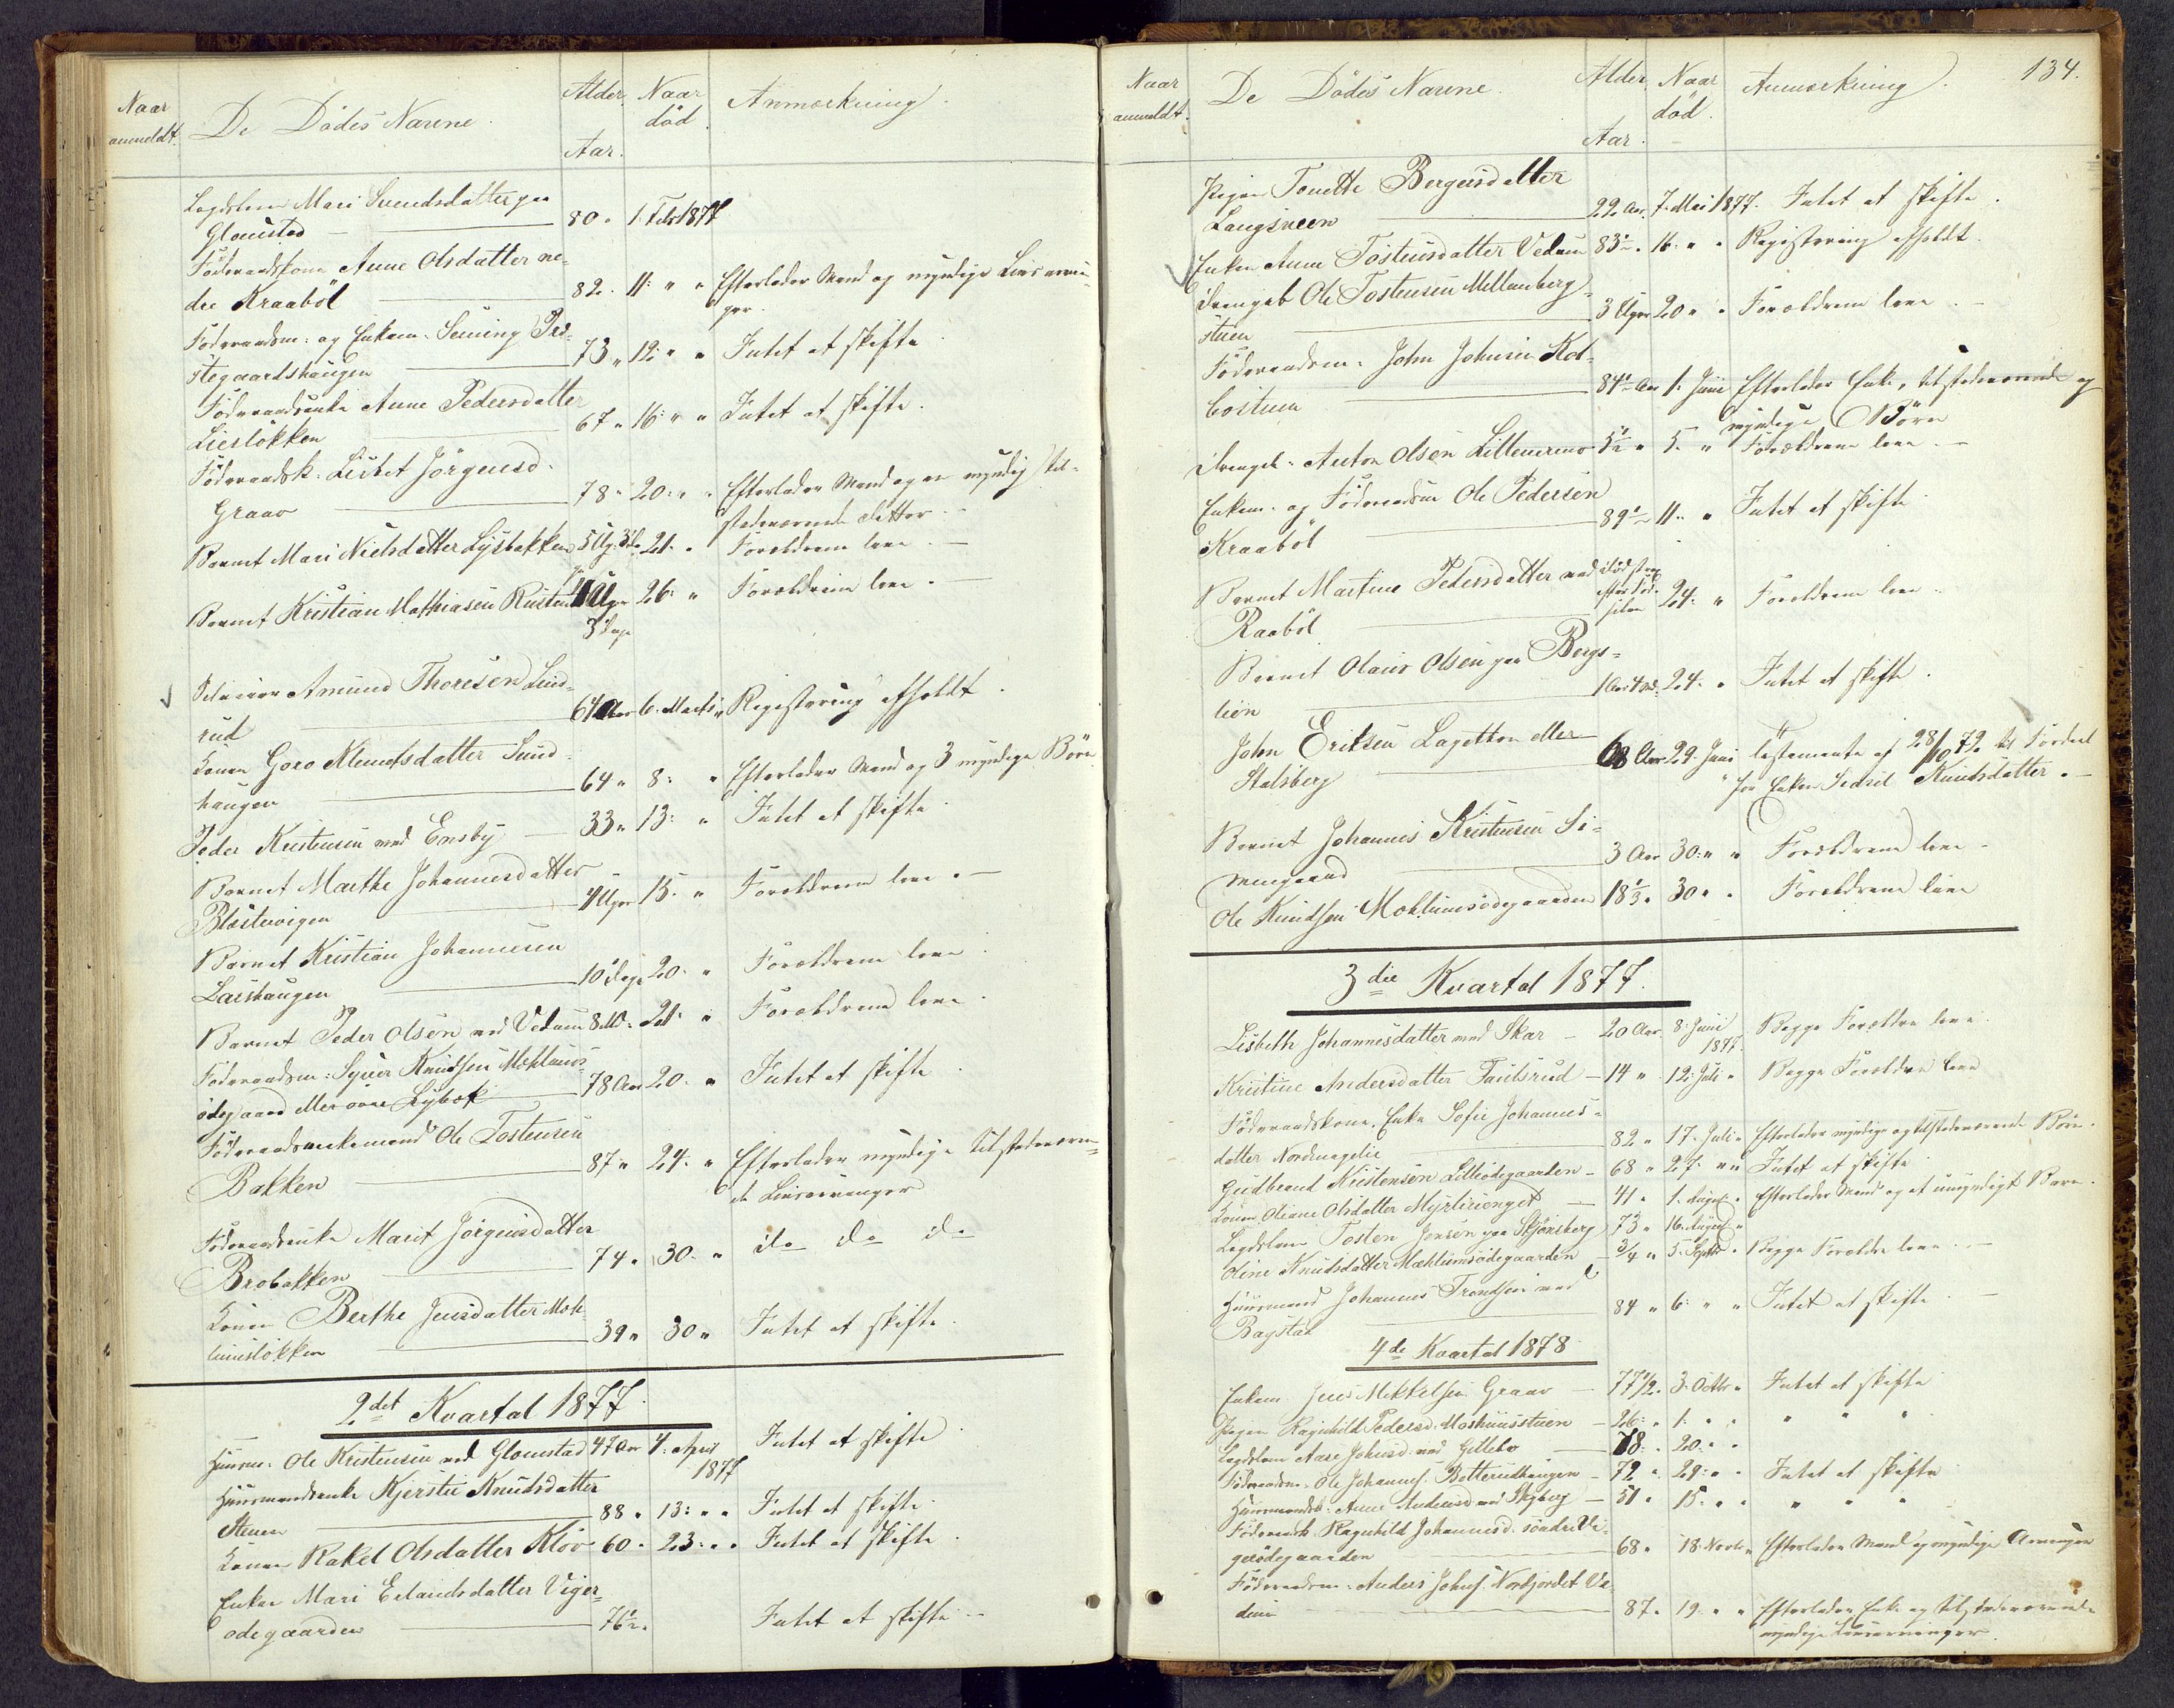 Naar anmeldt. De Dödes Navne. Alder Aar. Naar död. Anmærkning.
Lægdslem Mari Svendsdatter paa
Glomstad 80 " 1. Febr 1877
Föderaadskone Anne Olsdatter ne-
dre Kraaböl 82 . 11: " " Efterlader Mand og myndige Livsarvin-
ger.
Föderaadsm: og Enkem: Seming Præ-
stegaardshaugen 73 " 12: " " Intet at skifte.
Föderaadsenke Anne Pedersdatter
Lieslökken 67 " 16: " " Intet at skifte.
Föderaadsk: Lisbet Jörgensd.
Graav 78 " 20: " " Efterlader Mand og en myndig til-
stedeværende Datter.
Barnet Mari Nielsdatter Lysbakken 5 Ug: 3 D. 21. " Forældrene leve. —
Barnet Kristian Mathiasen Rusten 11 Uger 3 Dage 26: " Forældrene leve. —
Amund Thoresen Lund-
rud 64 Aar 6. Marts " Registrering afholdt.
Konen Goro Amundsdatter Sund-
haugen 64 " 8: " Efterlader Mand og 3 myndige Börn.
Peder Kristensen ved Ensby 33 " 13: " Intet at skifte.
Barnet Marthe Johannesdatter
Blæstervigen 11 Uger 15. " Forældrene leve. —
Barnet Kristian Johannesen
Larshaugen 10 Dage 20. " Forældrene leve.
Barnet Peder Olsen ved Vedum 8 Md: 21. " Forældrene leve.
Föderaadsm: Syver Knudsen Mæhlums-
ödegaard eller övre Lybæk 78 Aar 20. " Intet at skifte.
Föderaadsenkemand Ole Tostensen
Bakken 87 " 24. " Efterlader myndige tilstedeværen-
de Livsarvinger
Föderaadsenke Marit Jörgensdatter
Brobakken 74 " 30. " do do do
Konen Berthe Jensdatter Mæh-
lumslökken 39 " 30 " Intet at skifte.
2det Kvartal 1877.
Husm: Ole Kristensen ved Glomstad 47 Aar 4. April 1877 Intet at skifte.
Husmandsenke Kjersti Knudsdatter
Stenen 88 " 13: " " Intet at skifte.
Konen Rakel Olsdatter Klöv 60 " 23: " " Intet at skifte.
Enken Mari Erlandsdatter Viger-
ödegaarden 76½ " Intet at skifte —
Naar anmeldt. De Dödes Navne. Alder Aar. Naar död. Anmærkning. 134.
Pigen Tonette Bergersdatter
Langsveen 22 Aar. 7. Mai 1877. Intet at skifte.
Enken Anne Tostensdatter Vedum 83½ " 16: " " Registrering afholdt.
Drengeb. Ole Tostensen Mellemberg-
stuen 3 Uger 20 " " Forældrene leve. —
Föderaadsm: John Johnsen Kol-
bostuen 84½ Aar 1. Juni Efterlader Enke, tilstedeværende og
myndige Börn
Drengeb: Anton Olsen Lillemoeno 5½ " 5. " Forældrene leve. —
Enkem: og Föderaadsm Ole Pedersen
Kraaböl 89½ 11. " Intet at skifte
Barnet Martine Pedersdatter ved
Raaböl Död strax efter Födselen 24. " Forældrene leve.
Barnet Olaus Olsen paa Bergs-
lien 1 Aar 4 Md. 24. " Intet at skifte.
John Eriksen Lagetton eller
Stalsberg 68 Aar 29. Juni Testamente af 28/10 72 til Fordeel
for Enken Sidsel Knudsdatter. —
Barnet Johannes Kristensen Si-
mengaard 3 Aar 30: " " Forældrene leve.
Ole Knudsen Mæhlumsödegaarden 18⅓ " 30 " " Forældrene leve
3die Kvartal 1877.
Lisbeth Johannesdatter ved Skar — 20 Aar. 8: Juni 1877. Begge Forældre leve.
Kristine Andersdatter Taulsrud — 14 " 12: Juli " Begge Forældre leve
Föderaadskone, Enke Sofie Johannes-
datter Nordmagelie 82 " 17. Juli " Efterlader myndige og tilstedeværende Börn.
Gudbrand Kristensen Lilleödegaarden — 68 " 27. " " Intet at skifte
Konen Oliane Olsdatter Myrlirienget — 41 " 1. August " Efterlader Mand og et umyndigt Barn.
Lægdslem Tosten Jensen paa Skjönsberg 73 " 16. August "
Oline Knudsdatter Mæhlumsödegaarden — ¾ " 5. Septbr " Begge Forældre leve. —
Husmand Johannes Trondsen ved
Bagstad 84 " 6. " " Intet at skifte. —
4de Kvartal 1878
Enkem. Jens Mikkelsen Graav — 77½ " 3. Octbr " Intet at skifte
Pigen Ragnhild Pedersd. Moshuusstuen — 26: " 1. " " " " "
Lægdslem Aase Johnsd. ved Gillebo — 78: " 20. " "
Föderaadsm. Ole Johannes. Botterudhaugen — 72 " 29: " " Intet at skifte
Husmandsk: Anne Andersd. ved Skyberg — 51 " 15. " " " " "
Föderaadsk. Ragnhild Johannesd. söndre Vi-
gerödegaarden 68 " 18. Novbr " Efterlader Mand og myndige Arvinger
Föderaadsm. Anders Johns. Nordjordet Ve-
dum 87. 19. " " Efterlader Enke og tilstedeværende
myndige Livsarvinger.